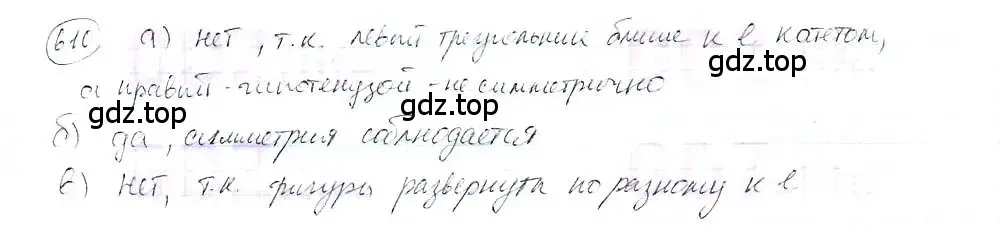 610 а) нет, т.к. левый треугольник ближе к l катетом,
а правый - гипотенузой - не симметрично
gdz.top
gdz.top
gdz.top
б) да, симметрия соблюдается
в) нет, т.к. фигуры развернуты по разному к l
gdz.top
gdz.top